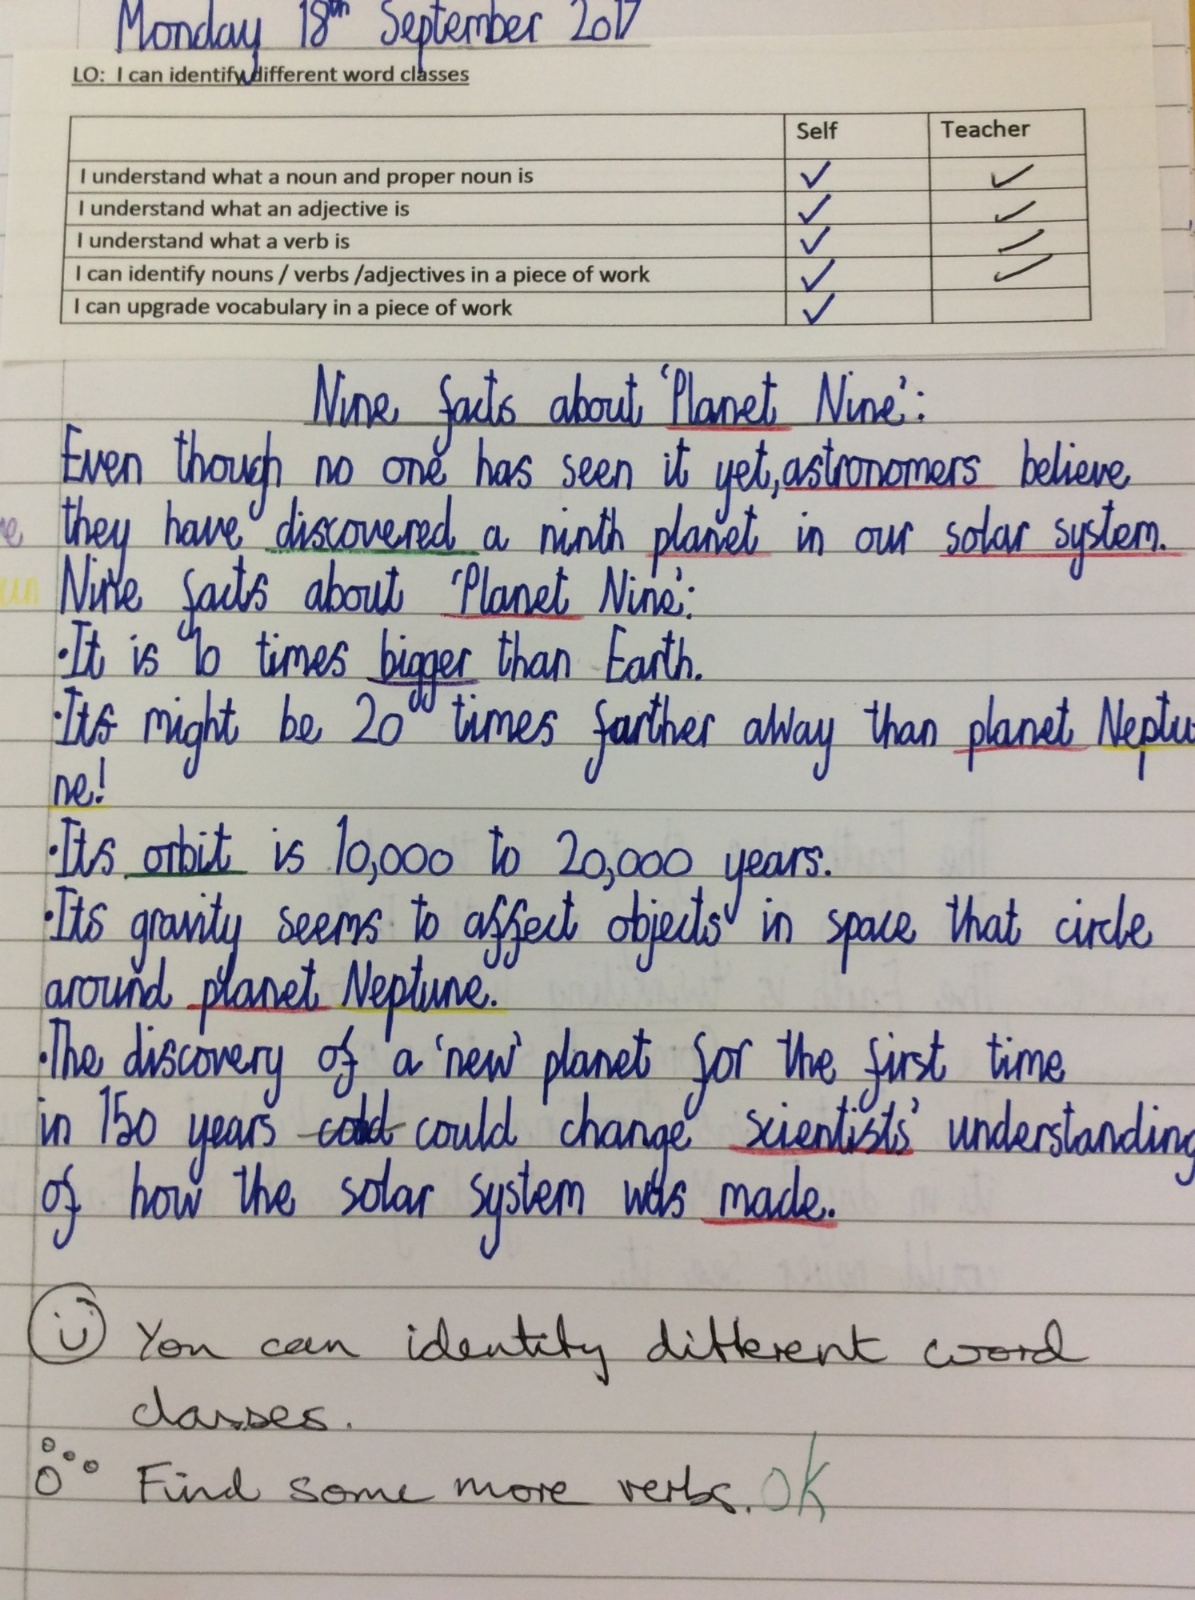 Monday 18th September 2017
LO: I can identify different word classes
Self Teacher
I understand what a noun and proper noun is ✓ ✓
I understand what an adjective is ✓ ✓
I understand what a verb is ✓ ✓
I can identify nouns / verbs /adjectives in a piece of work ✓ ✓
I can upgrade vocabulary in a piece of work ✓
Nine facts about 'Planet Nine':
Even though no one has seen it yet, astronomers believe
they have discovered a ninth planet in our solar system.
Nine facts about 'Planet Nine':
•It is 10 times bigger than Earth.
•It might be 20 times farther away than planet Neptu
ne!
•Its orbit is 10,000 to 20,000 years.
•Its gravity seems to affect objects in space that circle
around planet Neptune.
•The discovery of a 'new' planet for the first time
in 150 years could change scientists' understanding
of how the solar system was made.
You can identity different word
classes.
Find some more verbs. OK